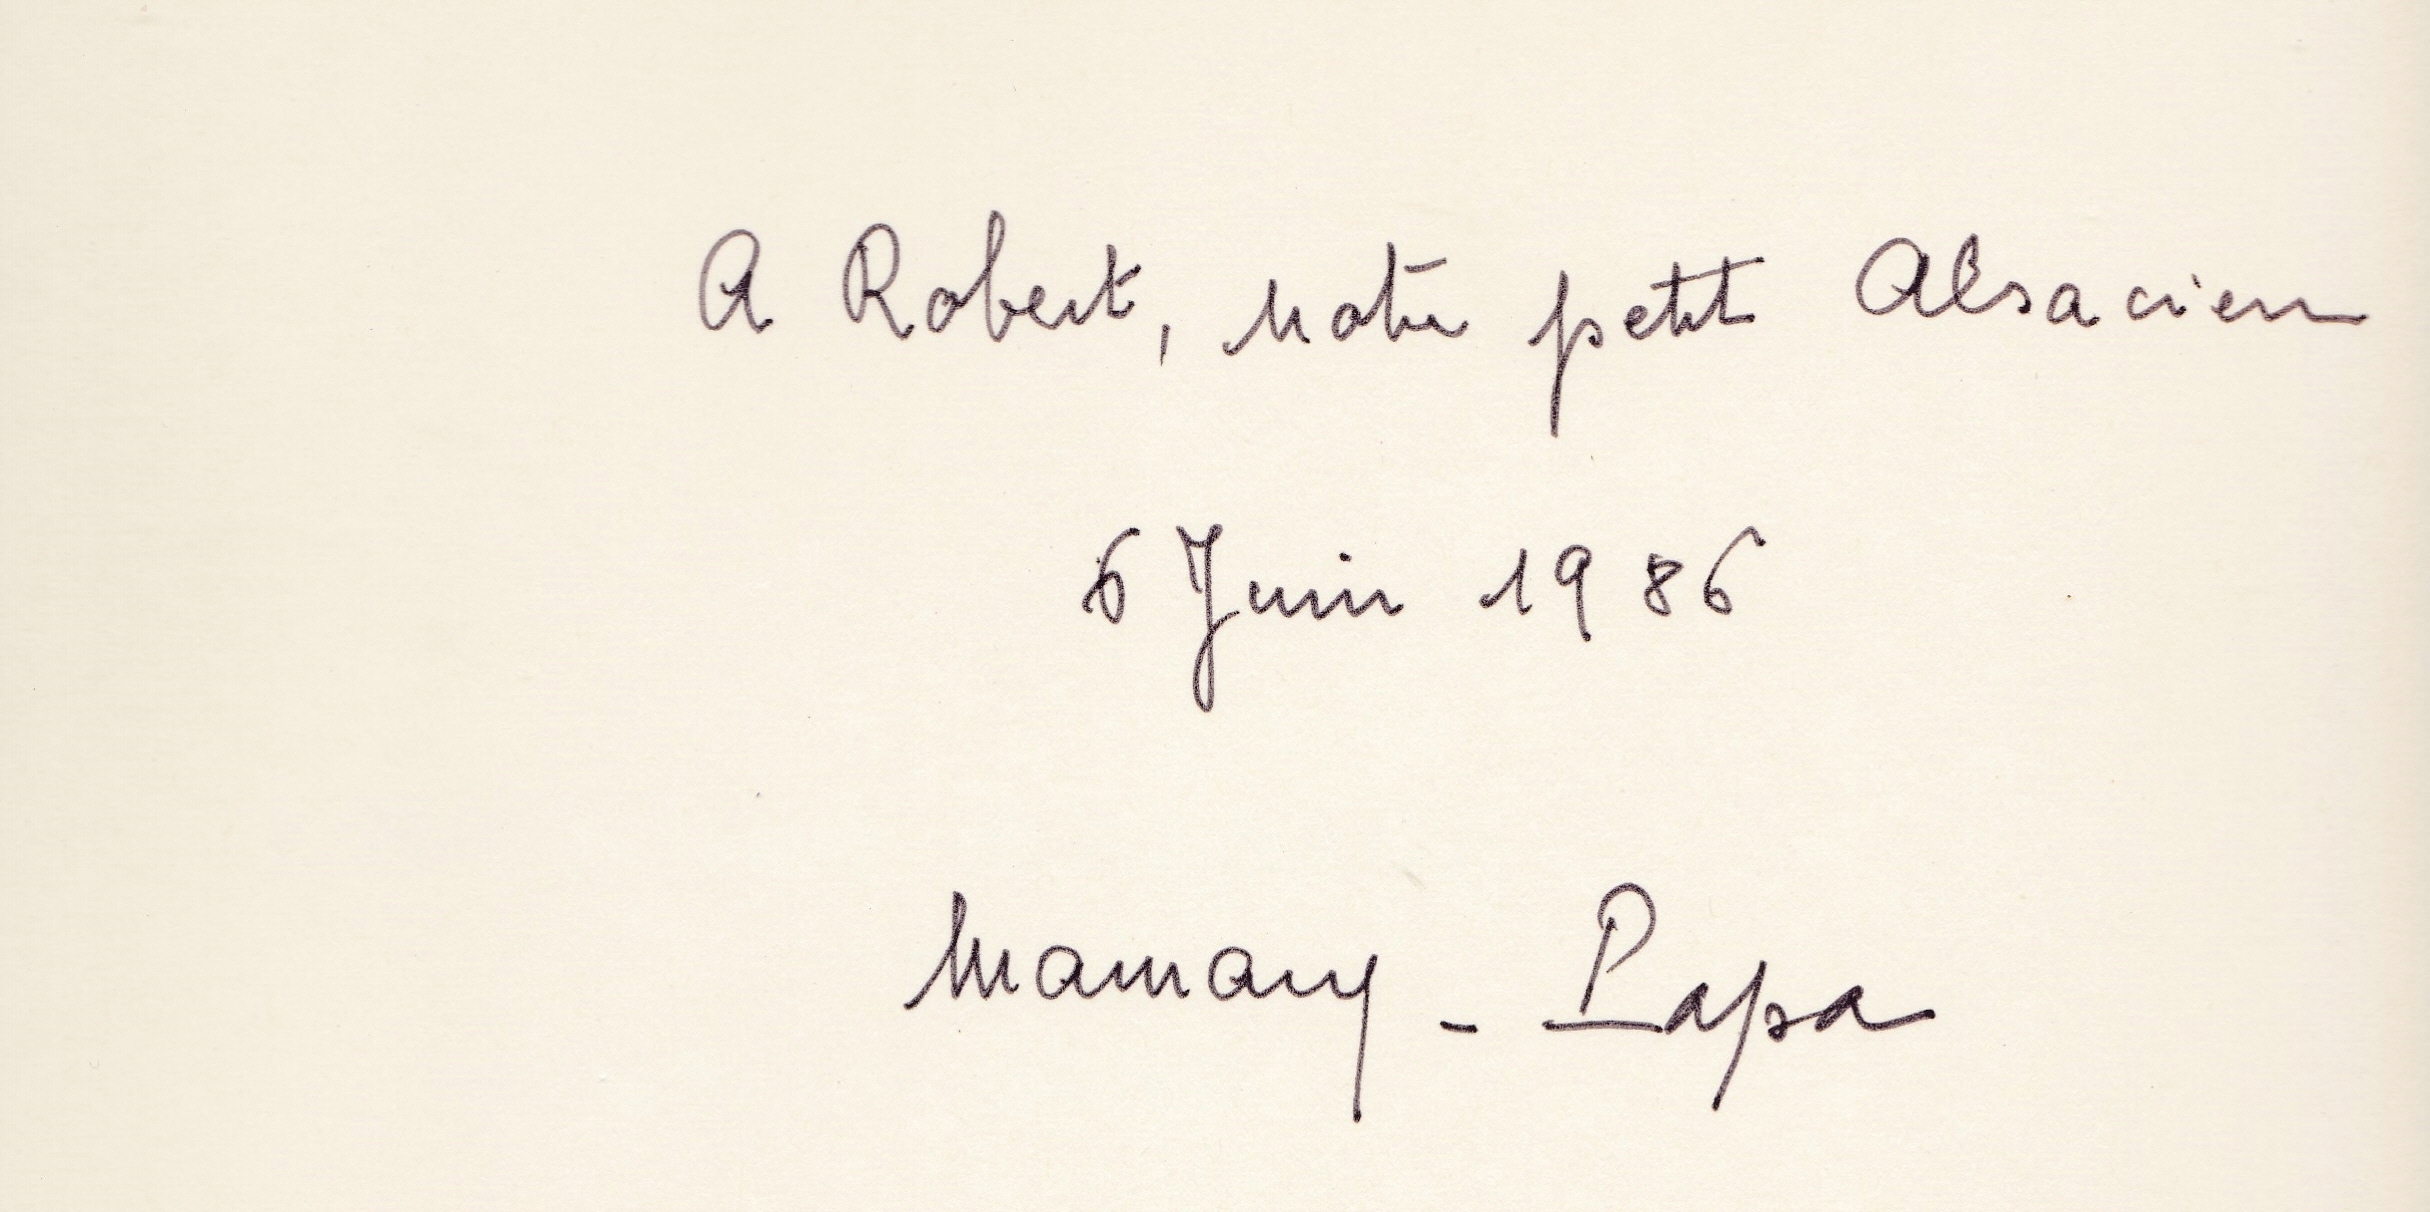 A Robert, notre petit Alsacien
6 Juin 1986
Mamany - Papa